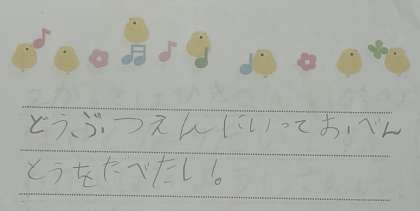 どうぶつえんにいっておべん
とうをたべたい!